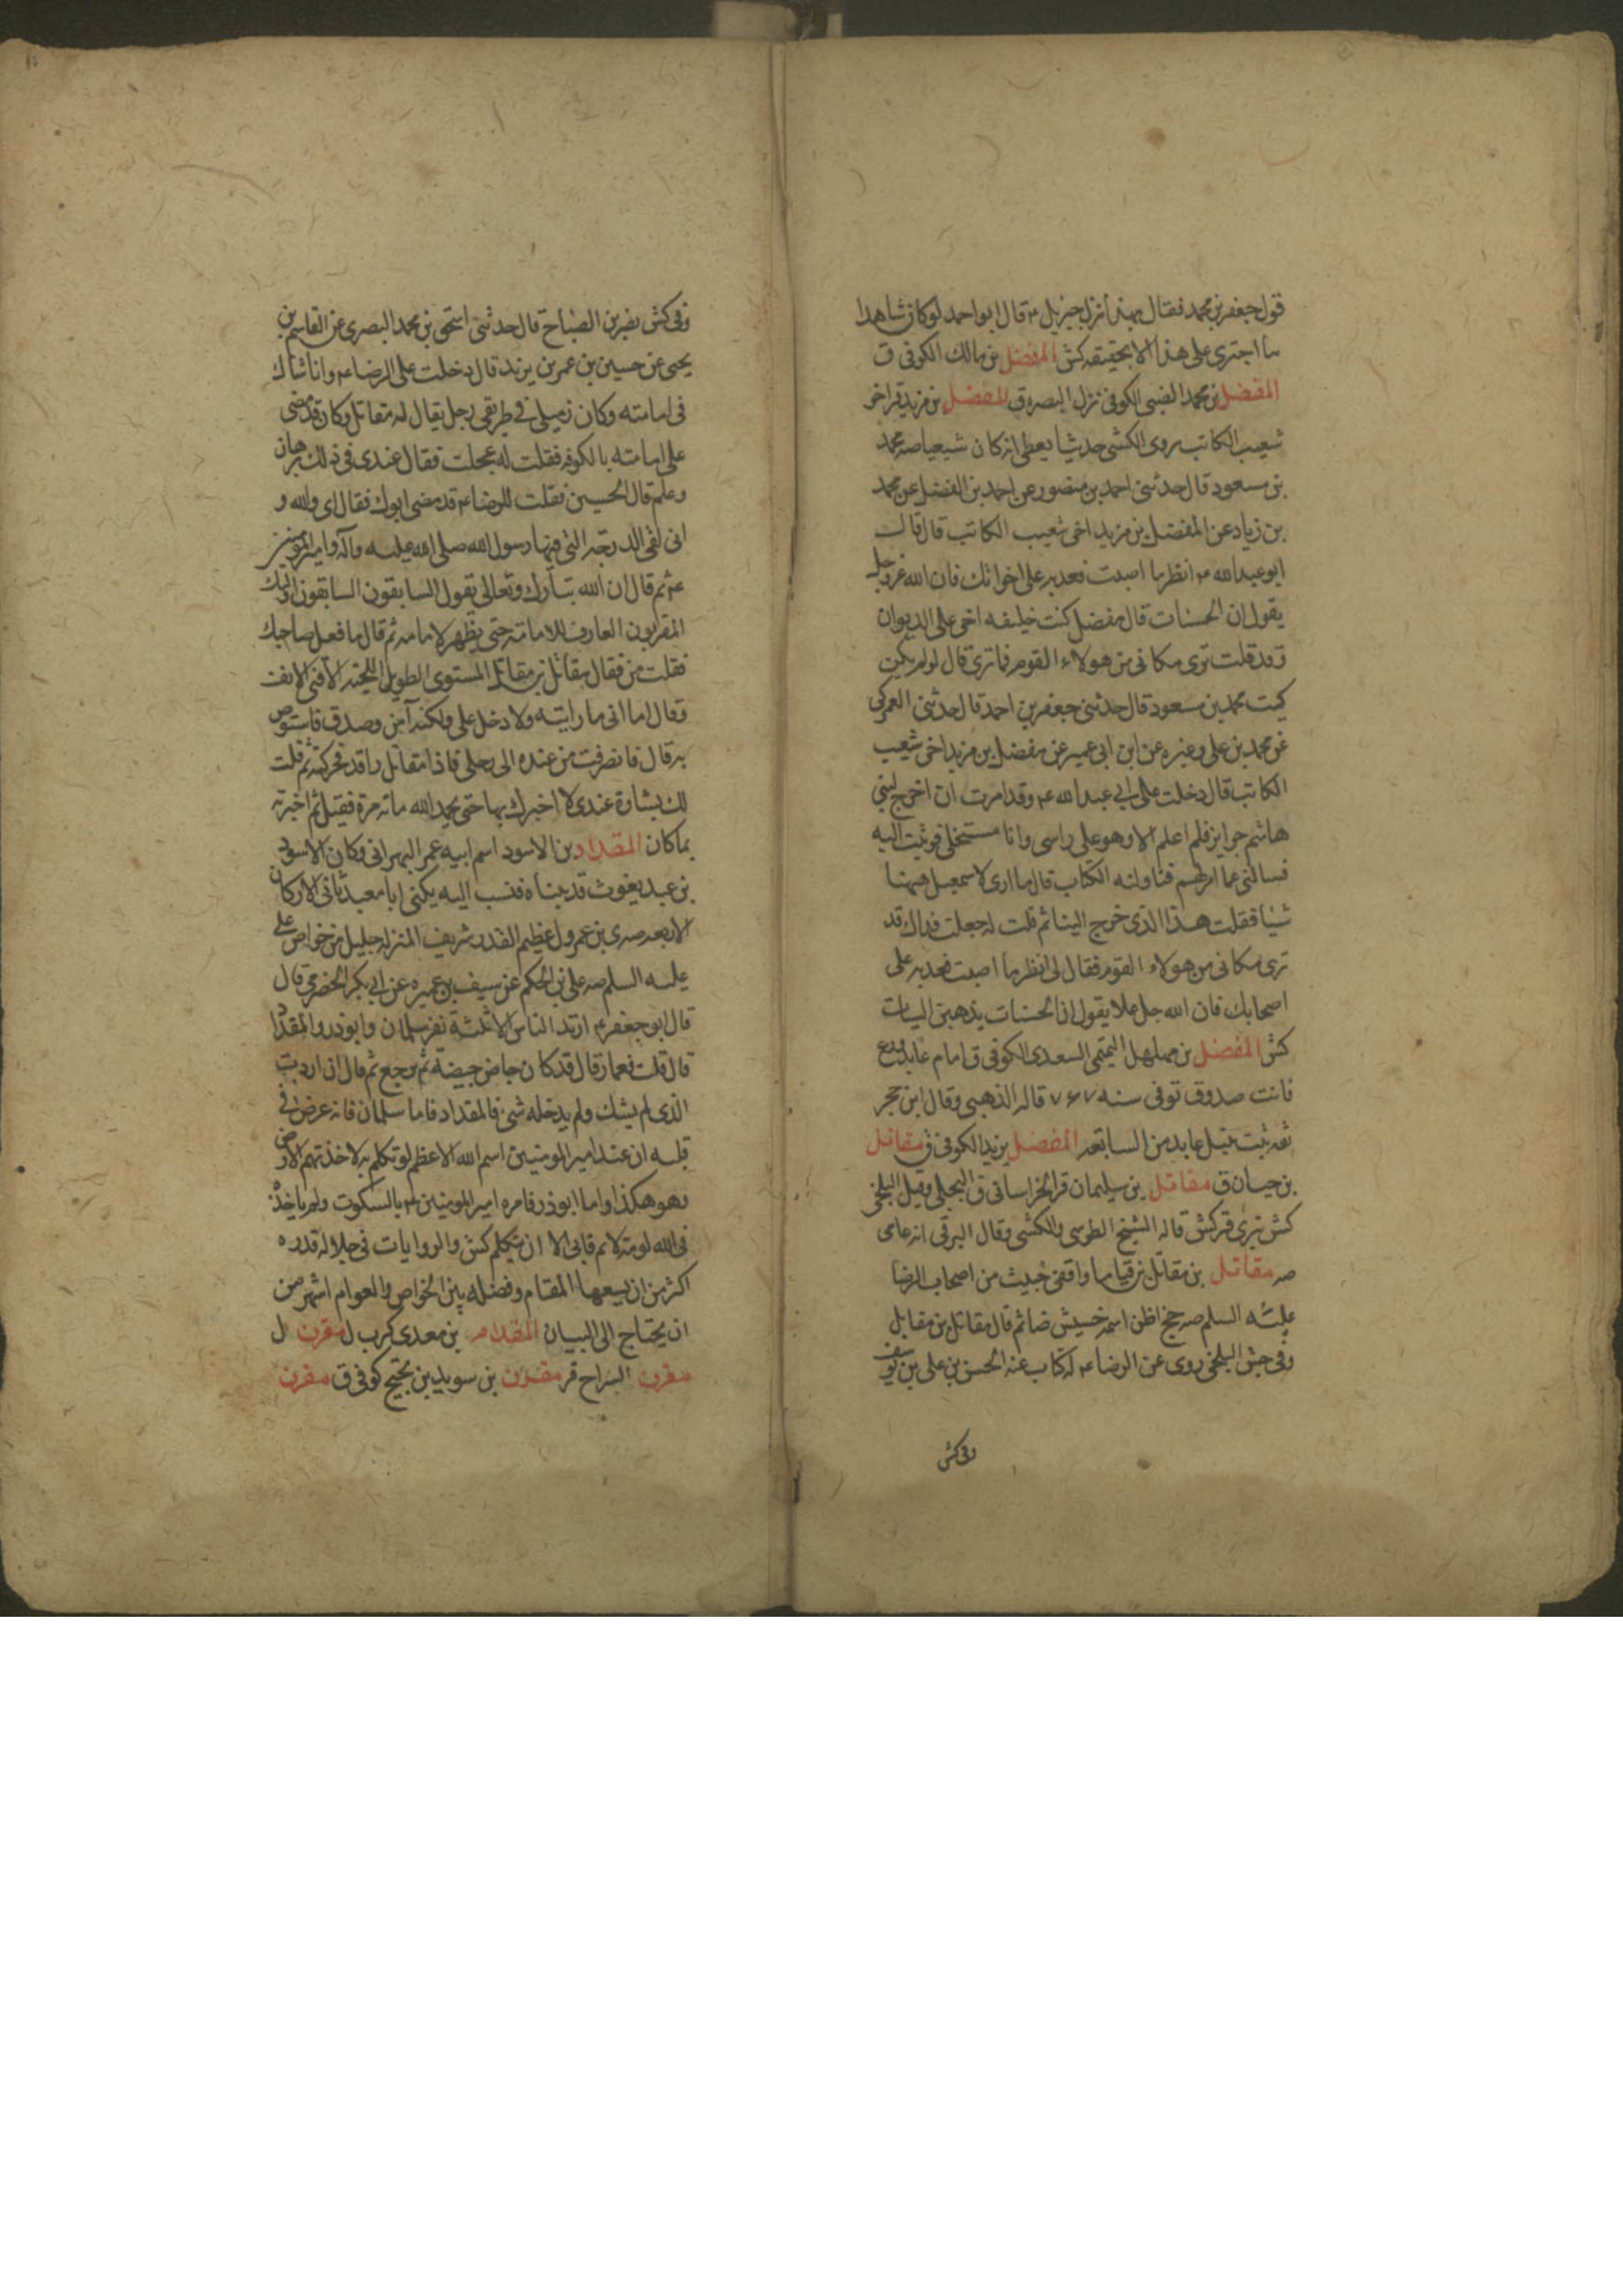 قول جعفر بن محمد فقال بهذا نزل جبريل ع قال ابو احمد لو كان شاهدا
ما اجترى على هذا الا بحقيقه كش المفضل بن مالك الكوفى ق
المفضل بن محمد الضبى الكوفى نزل البصره ق المفضل بن مزيد قر اخو
شعيب الكاتب روى الكشى حديثا يعطى انه كان شيعيا صه محمد
بن مسعود قال حدثنى احمد بن منصور عن احمد بن الفضل عن محمد
بن زياد عن المفضل بن مزيد اخى شعيب الكاتب قال قال
ابو عبد الله ع انظر ما اصبت فعد به على اخوانك فان الله عز وجل
يقول ان الحسنات قال مفضل كنت خليفه اخى على الديوان
وقد قلت ترى مكانى من هولاء القوم فما ترى قال لو لم يكن
كيت محمد بن مسعود قال حدثنى جعفر بن احمد قال حدثنى العمركى
عن محمد بن على وغيره عن ابن ابى عمير عن مفضل بن مزيد اخى شعيب
الكاتب قال دخلت على ابى عبد الله ع وقد امرت ان اخرج لبنى
هاشم جوايز فلم اعلم الا وهو على راسى وانا مستخلى فوثبت اليه
فسالنى عما امر لهم فناولته الكتاب قال ما ارى لاسمعيل ههنا
شيئا فقلت هذا الذى خرج الينا ثم قلت له جعلت فداك قد
ترى مكانى من هولاء القوم فقال لى انظر ما اصبت فعد به على
اصحابك فان الله جل وعلا يقول ان الحسنات يذهبن السيات
كش المفضل بن مهلهل التميمى السعدى الكوفى ق امام عابد ورع
قانت صدوق توفى سنه ٧٦٧ قاله الذهبى وقال ابن حجر
ثقه ثبت نبيل عابد من السابعه المفضل بن يزيد الكوفى ق مقاتل
بن حيان ق مقاتل بن سليمان قر الخراسانى ق البجلى وقيل البلخى
كش تبرى قر كش قاله الشيخ الطوسى والكشى وقال البرقى انه عامى
صه مقاتل بن مقاتل بن قياما واقفى خبيث من اصحاب الرضا
عليه السلم صه جخ اظن اسمه خسيش ضا ثم قال مقاتل بن مقاتل
وفى جش البلخى روى عن الرضا ع له كتاب عنه الحسن بن على بن يوسف
وفى كش
وفى كش نصر بن الصباح قال حدثنى اسحق بن محمد البصرى عن القاسم بن
يحيى عن حسين بن عمر بن يزيد قال دخلت على الرضا ع وانا شاك
فى امامته وكان زميلى فى طريقى رجل يقال له مقاتل وكان قد مضى
على امامته بالكوفه فقلت له عجلت فقال عندى فى ذلك برهان
وعلم قال الحسين فقلت للرضا ع قد مضى ابوك فقال اى والله و
انى لفى الدرجه التى فيها رسول الله صلى الله عليه وآله وامير المومنين
ع ثم قال ان الله تبارك وتعالى يقول السابقون السابقون اولئك
المقربون العارف للامامة حتى يظهر لامامه ثم قال ما فعل صاحبك
فقلت من فقال مقاتل بن مقاتل المستوى الطويل اللحيه الاقنى الانف
وقال اما انى ما رايته ولا دخل على ولكنه آمن وصدق فاستوص
به قال فانصرفت من عنده الى رحلى فاذا مقاتل راقد فحركته ثم قلت
لك بشارة عندى لا اخبرك بها حتى تحمد الله ماته مرة ففعل ثم اخبرته
بما كان المقداد بن الاسود اسم ابيه عمر البهرانى وكان الاسود
بن عبد يغوث قد تبناه فنسب اليه يكنى ابا معبد ثانى الاركان
الاربعه صه ى بن عمرو ل عظيم القدر شريف المنزله جليل من خواص على
عليه السلم صه على بن الحكم عن سيف بن عميره عن ابى بكر الحضرمى قال
قال ابو جعفر ع ارتد الناس الا ثلثة نفر سلمان وابو ذر والمقداد
قال قلت فعمار قال قد كان حاص حيصة ثم رجع ثم قال ان اردت
الذى لم يشك ولم يدخله شى فالمقداد فاما سلمان فانه عرض فى
قلبه ان عند امير المومنين اسم الله الاعظم لو تكلم به لاخذتهم الارض
وهو هكذا واما ابو ذر فامره امير المومنين ع بالسكوت ولم ياخذه
فى الله لومة لائم فابى الا ان يتكلم كش والروايات فى جلاله قدره
اكثر من ان يسعها المقام وفضله بين الخواص والعوام اشهر من
ان يحتاج الى البيان المقدام بن معدى كرب ل مقرن ل
مقرن السراج قر مقرن بن سويد بن نجيح كوفى ق مقرن